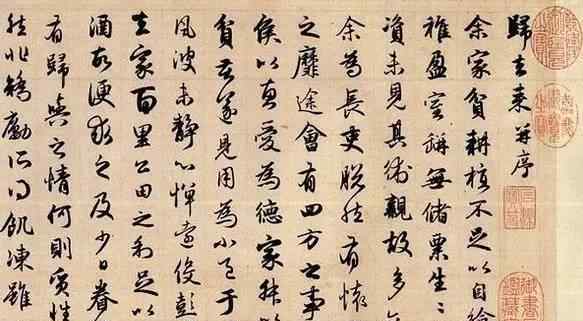 歸去來并序
余家貧耕植不足以自給
稚盈室缾無儲粟生〻
資未見其術親故多
余為長吏脫然有懷
之靡途會有四方之事
侯以惠愛為德家叔以
貧苦遂見用為小邑于
風波未靜心憚遠役彭
去家百里公田之利足以
酒故便求之及少日眷
有歸與之情何則質性
然非矯勵所得飢凍雖